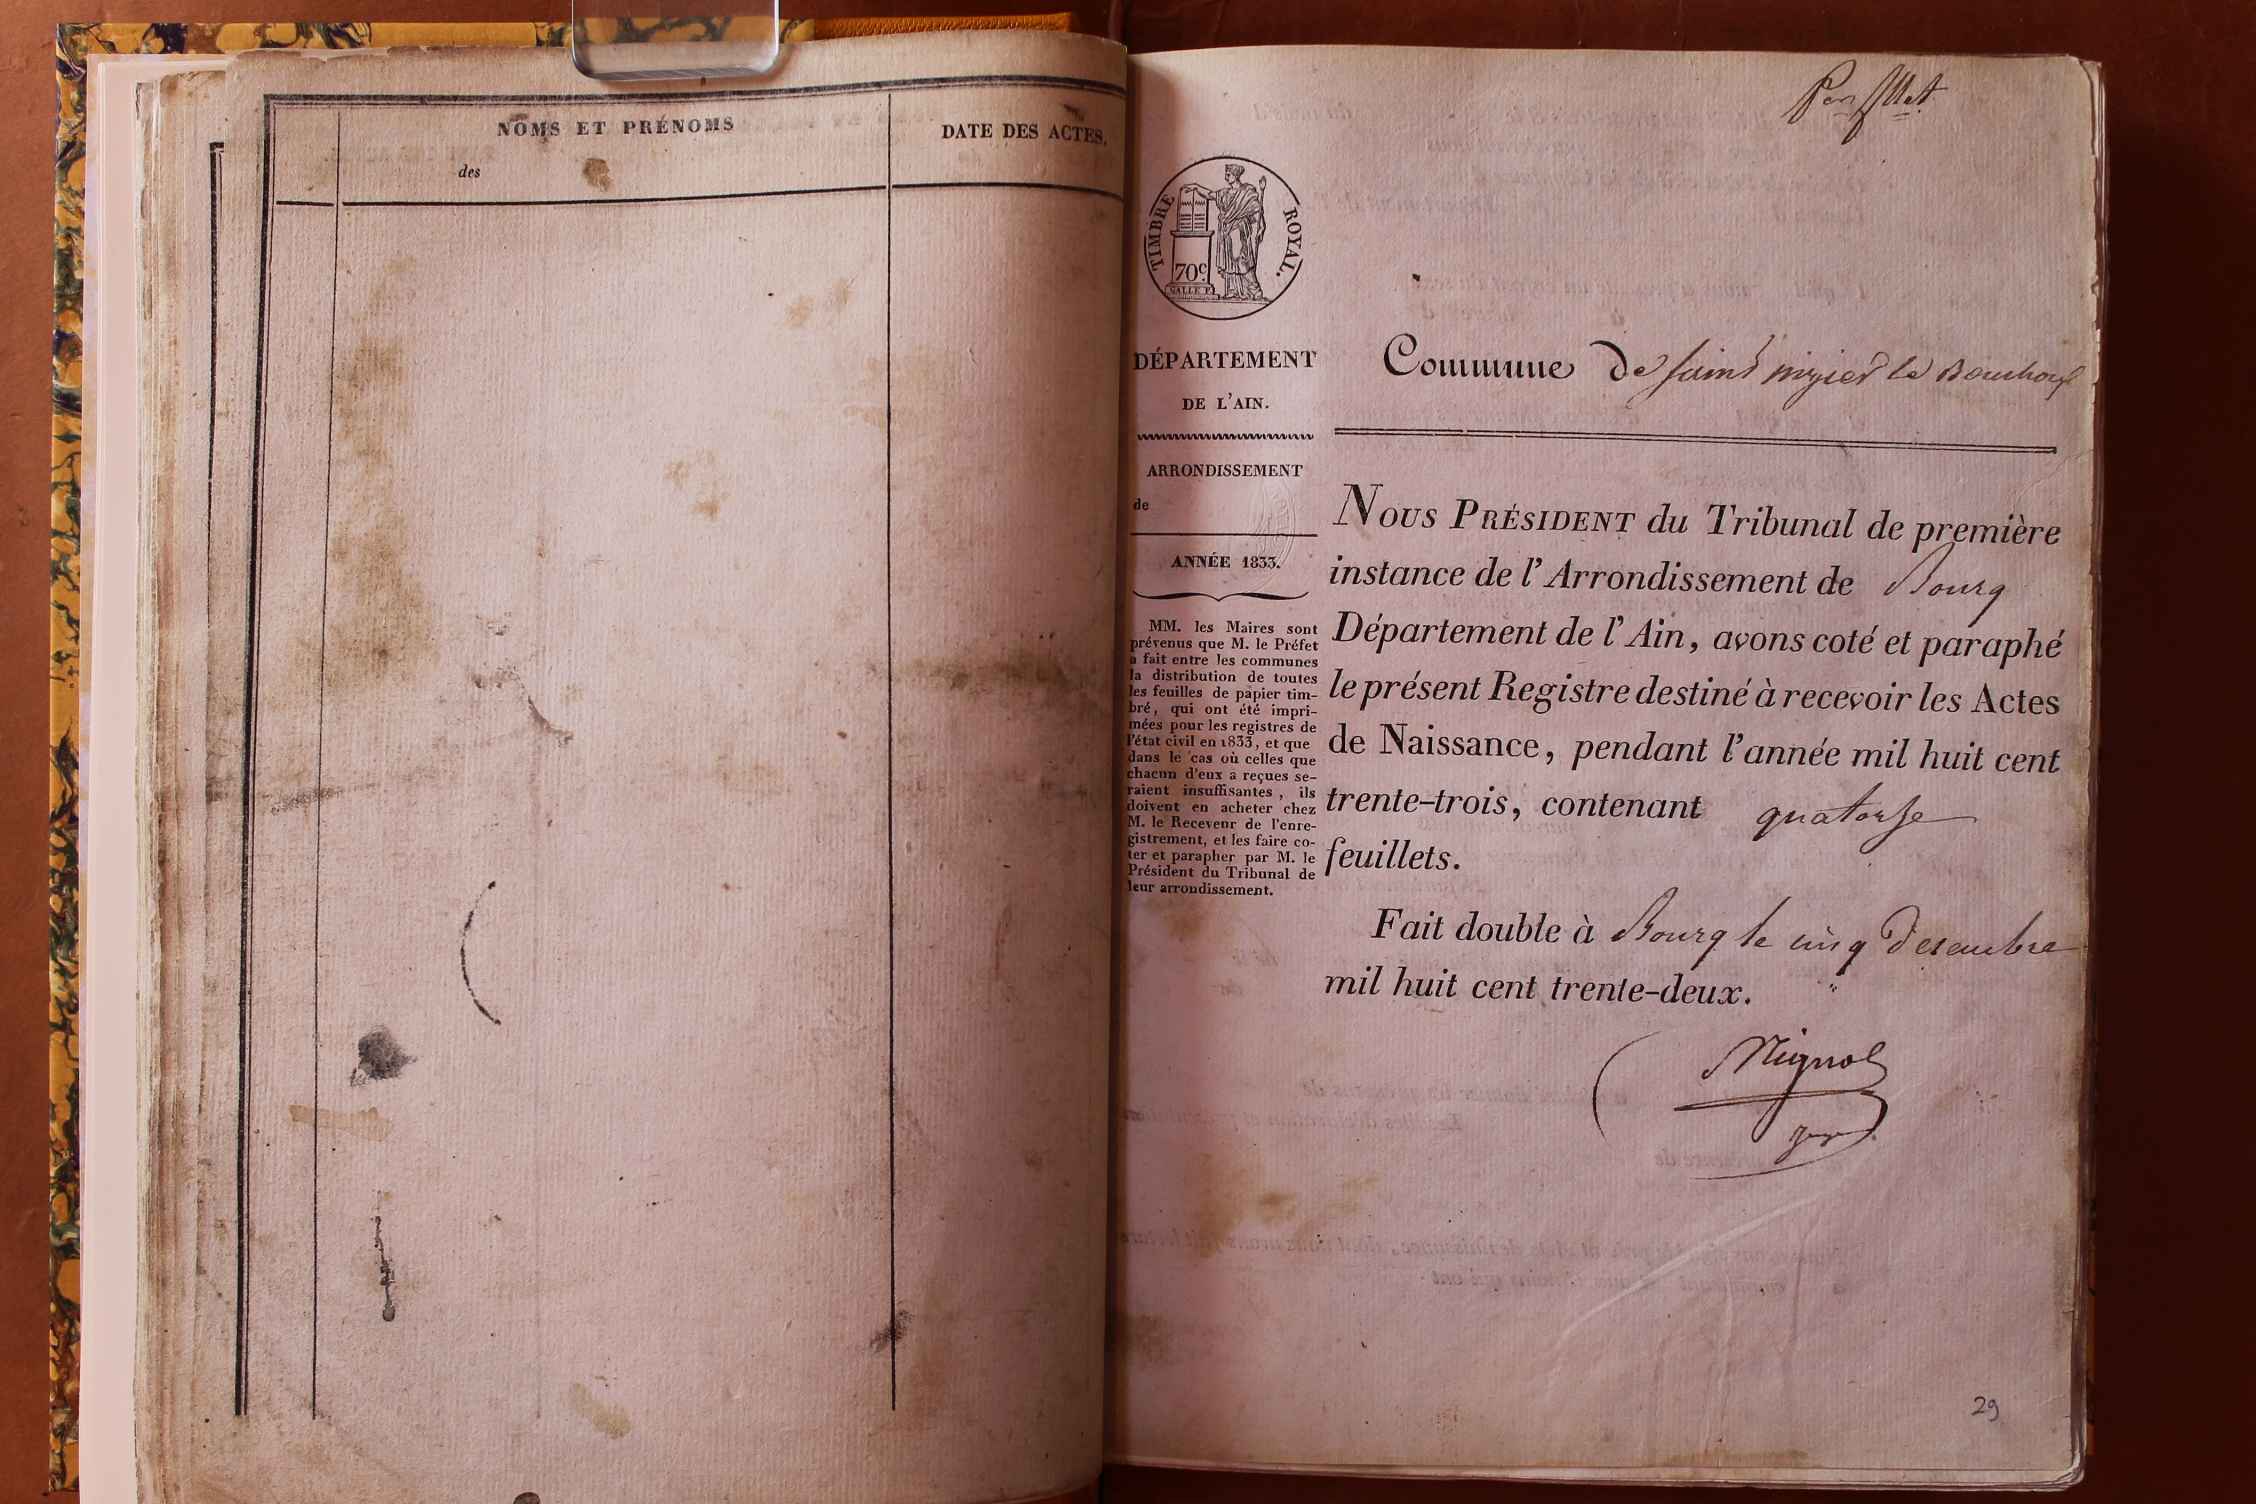 NOMS ET PRÉNOMS
des
DATE DES ACTES.
TIMBRE ROYAL.
70c.
DÉPARTEMENT
DE L'AIN.
ARRONDISSEMENT
de
ANNÉE 1833.
MM. les Maires sont
prévenus que M. le Préfet
a fait entre les communes
la distribution de toutes
les feuilles de papier tim-
bré, qui ont été impri-
mées pour les registres de
l'état civil en 1833, et que
dans le cas où celles que
chacun d'eux a reçues se-
raient insuffisantes, ils
doivent en acheter chez
M. le Receveur de l'enre-
gistrement, et les faire co-
ter et parapher par M. le
Président du Tribunal de
leur arrondissement.
Commune de saint nizier le Bouchoux
NOUS PRÉSIDENT du Tribunal de première
instance de l'Arrondissement de Bourg
Département de l'Ain, avons coté et paraphé
le présent Registre destiné à recevoir les Actes
de Naissance, pendant l'année mil huit cent
trente-trois, contenant quatorse
feuillets.
Fait double à Bourg le cinq Decembre
mil huit cent trente-deux.
29